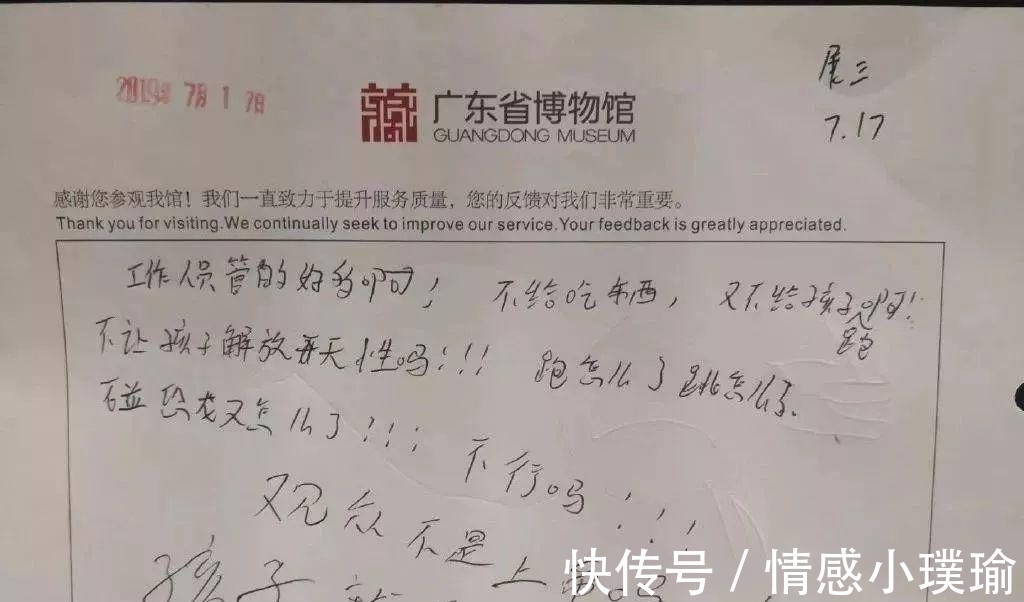 2019年7月17日
展三
7.17
广东省博物馆
GUANGDONG MUSEUM
感谢您参观我馆！我们一直致力于提升服务质量，您的反馈对我们非常重要。
Thank you for visiting.We continually seek to improve our service.Your feedback is greatly appreciated.
工作人员管的好多啊！不给吃东西，又不给孩子跑啊！
不让孩子解放天性吗！！！跑怎么了跳怎么了.
碰恐龙又怎么了！！！不行吗！！！
观众不是上帝吗
孩子
快传号/情感小璞瑜